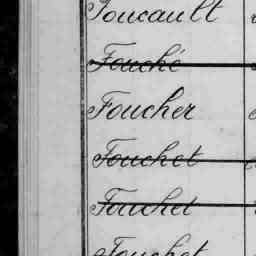 Foucault
Fouché
Foucher
Fouchet
Fouchet
Fouchet